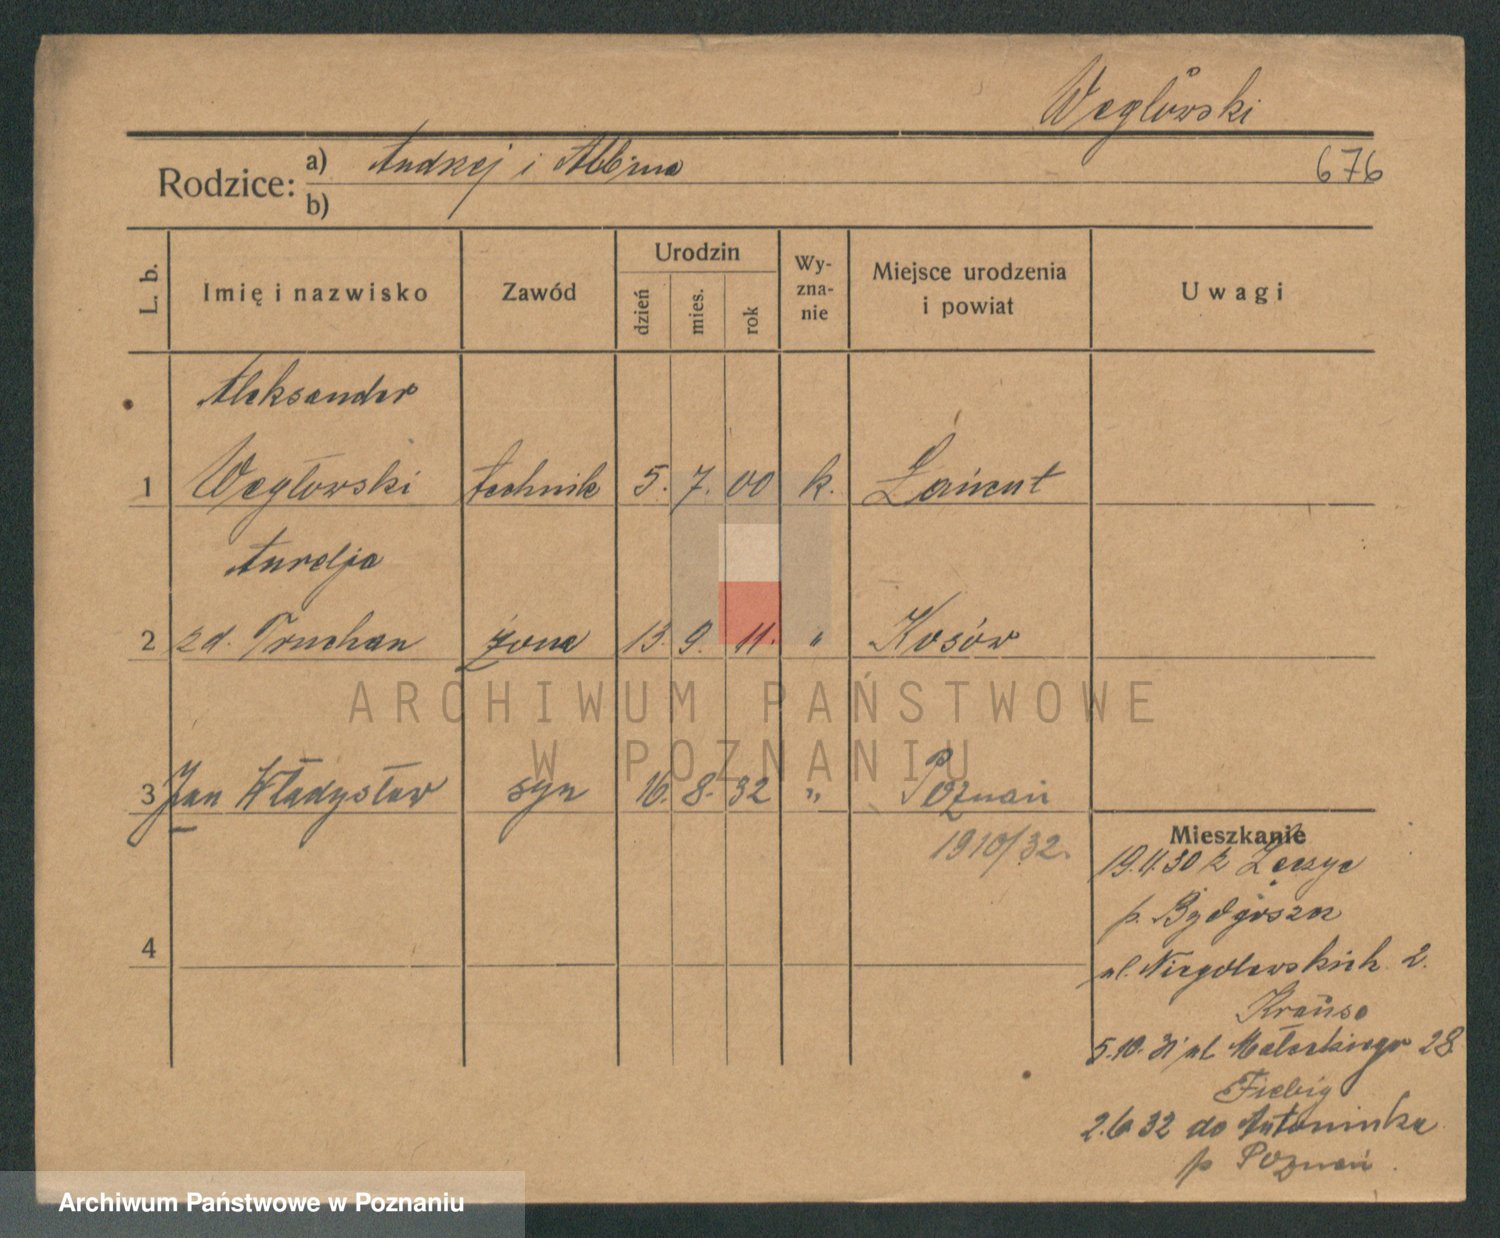 Węglowski
Rodzice: a) Andrzej i Albina
676
b)
L. b.
Imię i nazwisko
Zawód
Urodzin
dzień
mies.
rok
Wy-
zna-
nie
Miejsce urodzenia
i powiat
Uwagi
Aleksander
1 Węgłowski technik 5. 7. 00 k. Łańcut
Aurelja
2 zd. Truchan żona 13. 9. 11. " Kosów
ARCHIWUM PAŃSTWOWE
W POZNANIU
3 Jan Władysław syn 16. 8. 32 " Poznań
1910/32.
Mieszkanie
19.11.30 z
p. Bydgoszcz
ul. Niegolewskich 2.
Krause
5.10.31 ul. Małeckiego 28
Fiebig
2.6.32 do Antoninka
p Poznań.
4
Archiwum Państwowe w Poznaniu